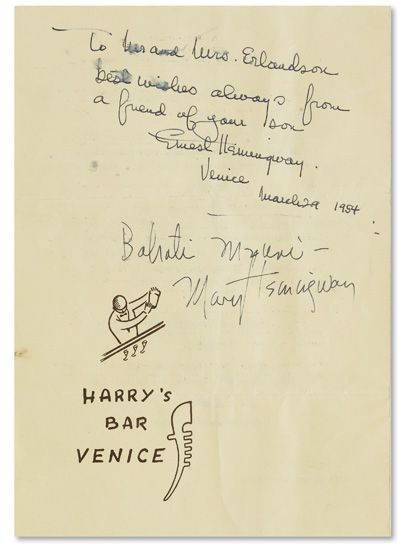 To Mr and Mrs. Erlandson
best wishes always from
a friend of your son
Ernest Hemingway.
Venice
March 29 1954
Bahati Mzuri –
Mary Hemingway
HARRY's
BAR
VENICE